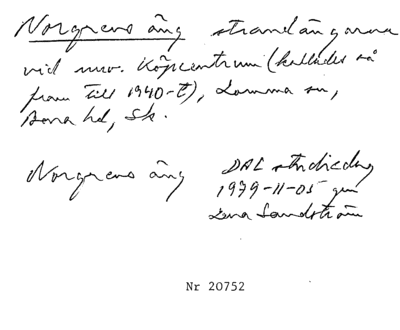 Norgrens äng strandängarna
vid nuv. Köpcentrum (kallades så
fram till 1940-t), Lomma sn,
Bara hd, Sk.
Norgrens äng DAL studiedag
1979-11-05 gm
Lena Sandström
Nr 20752